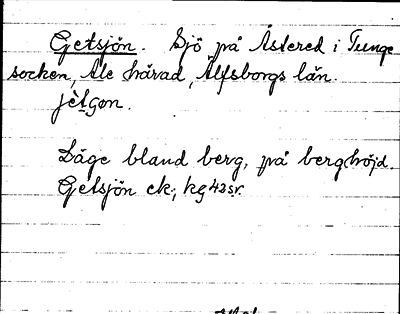 Getsjön. Sjö på Åstered i Tunge
socken, Ale härad, Älfsborgs län.
jètgøn.
Läge bland berg, på berghöjd.
Getsjön ek.; kg 42 sr.